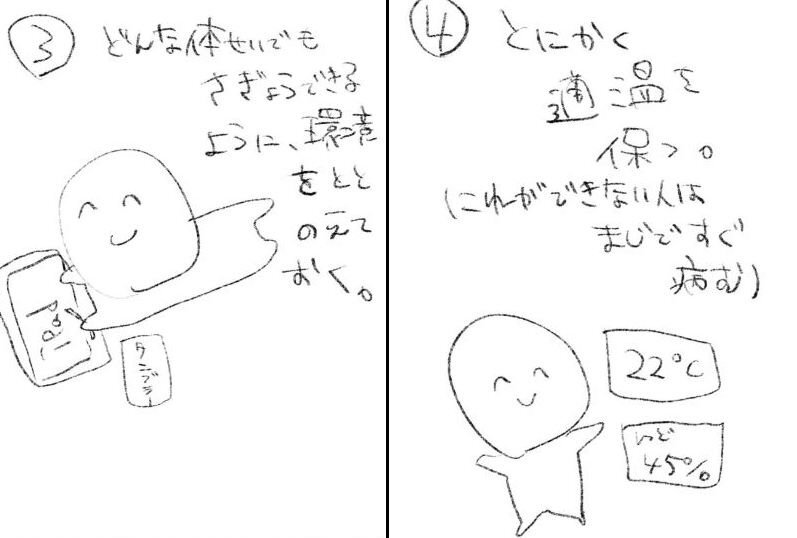 ③ どんな体せいでも
さぎょうできる
ように、環境
をとと
のえて
おく。
iPad
タンブラー
④ とにかく
適温を
保つ。
(これができない人は
まじですぐ
病む)
22℃
しつど
45%